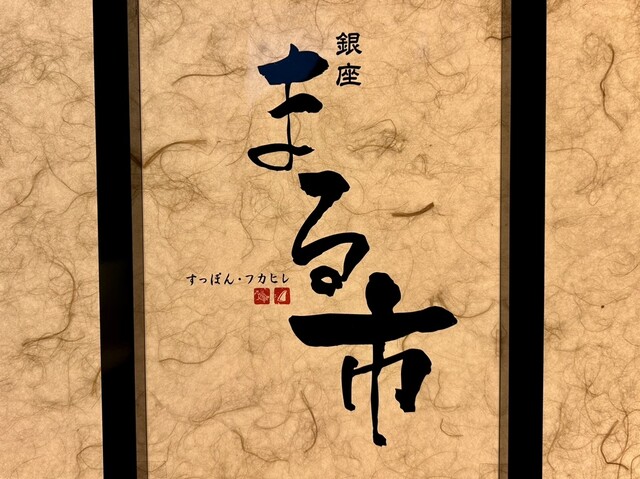 銀座
まる市
すっぽん・フカヒレ